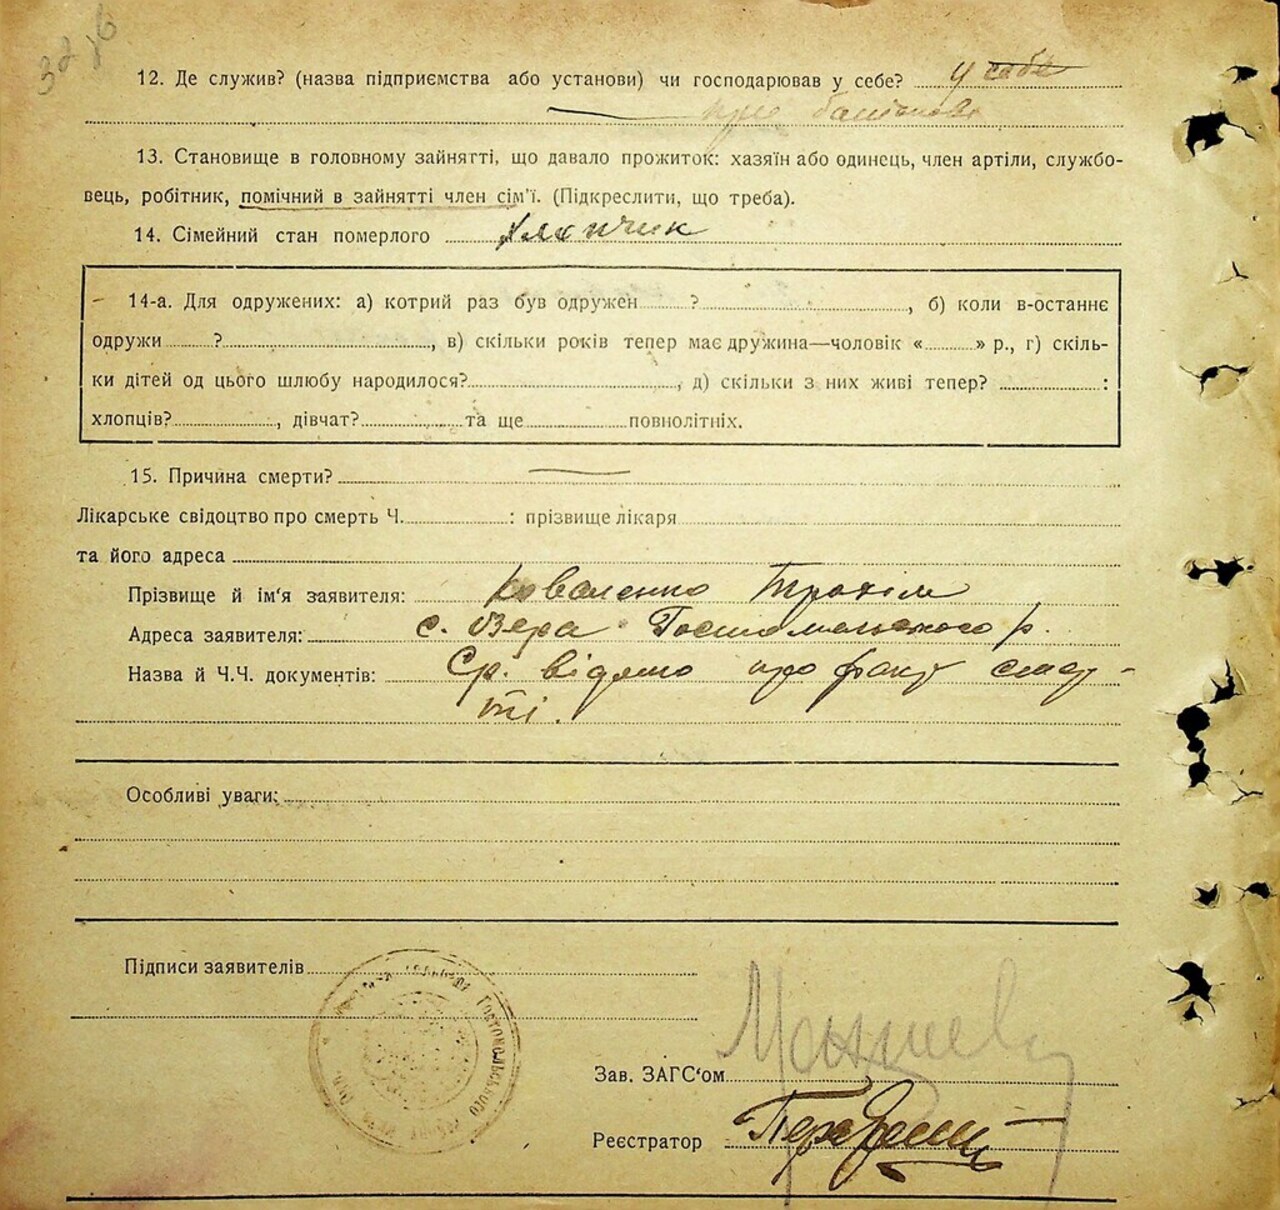 12. Де служив? (назва підприємства або установи) чи господарював у себе? у себе
при батькові
13. Становище в головному зайнятті, що давало прожиток: хазяїн або одинець, член артіли, службо-
вець, робітник, помічний в зайнятті член сім'ї. (Підкреслити, що треба).
14. Сімейний стан померлого хлопчик
14-а. Для одружених: а) котрий раз був одружен ? , б) коли в-останнє
одружи ? , в) скільки років тепер має дружина—чоловік « » р., г) скіль-
ки дітей од цього шлюбу народилося? , д) скільки з них живі тепер? :
хлопців? , дівчат? та ще повнолітніх.
15. Причина смерти?
Лікарське свідоцтво про смерть Ч. : прізвище лікаря
та його адреса
Прізвище й ім'я заявителя: Коваленко Трохім
Адреса заявителя: с. Озера Гостомельського р.
Назва й Ч.Ч. документів: Ср. відомо про факт смер-
ті.
Особливі уваги:
Підписи заявителів
Гостомельського
Зав. ЗАГС'ом
Реєстратор